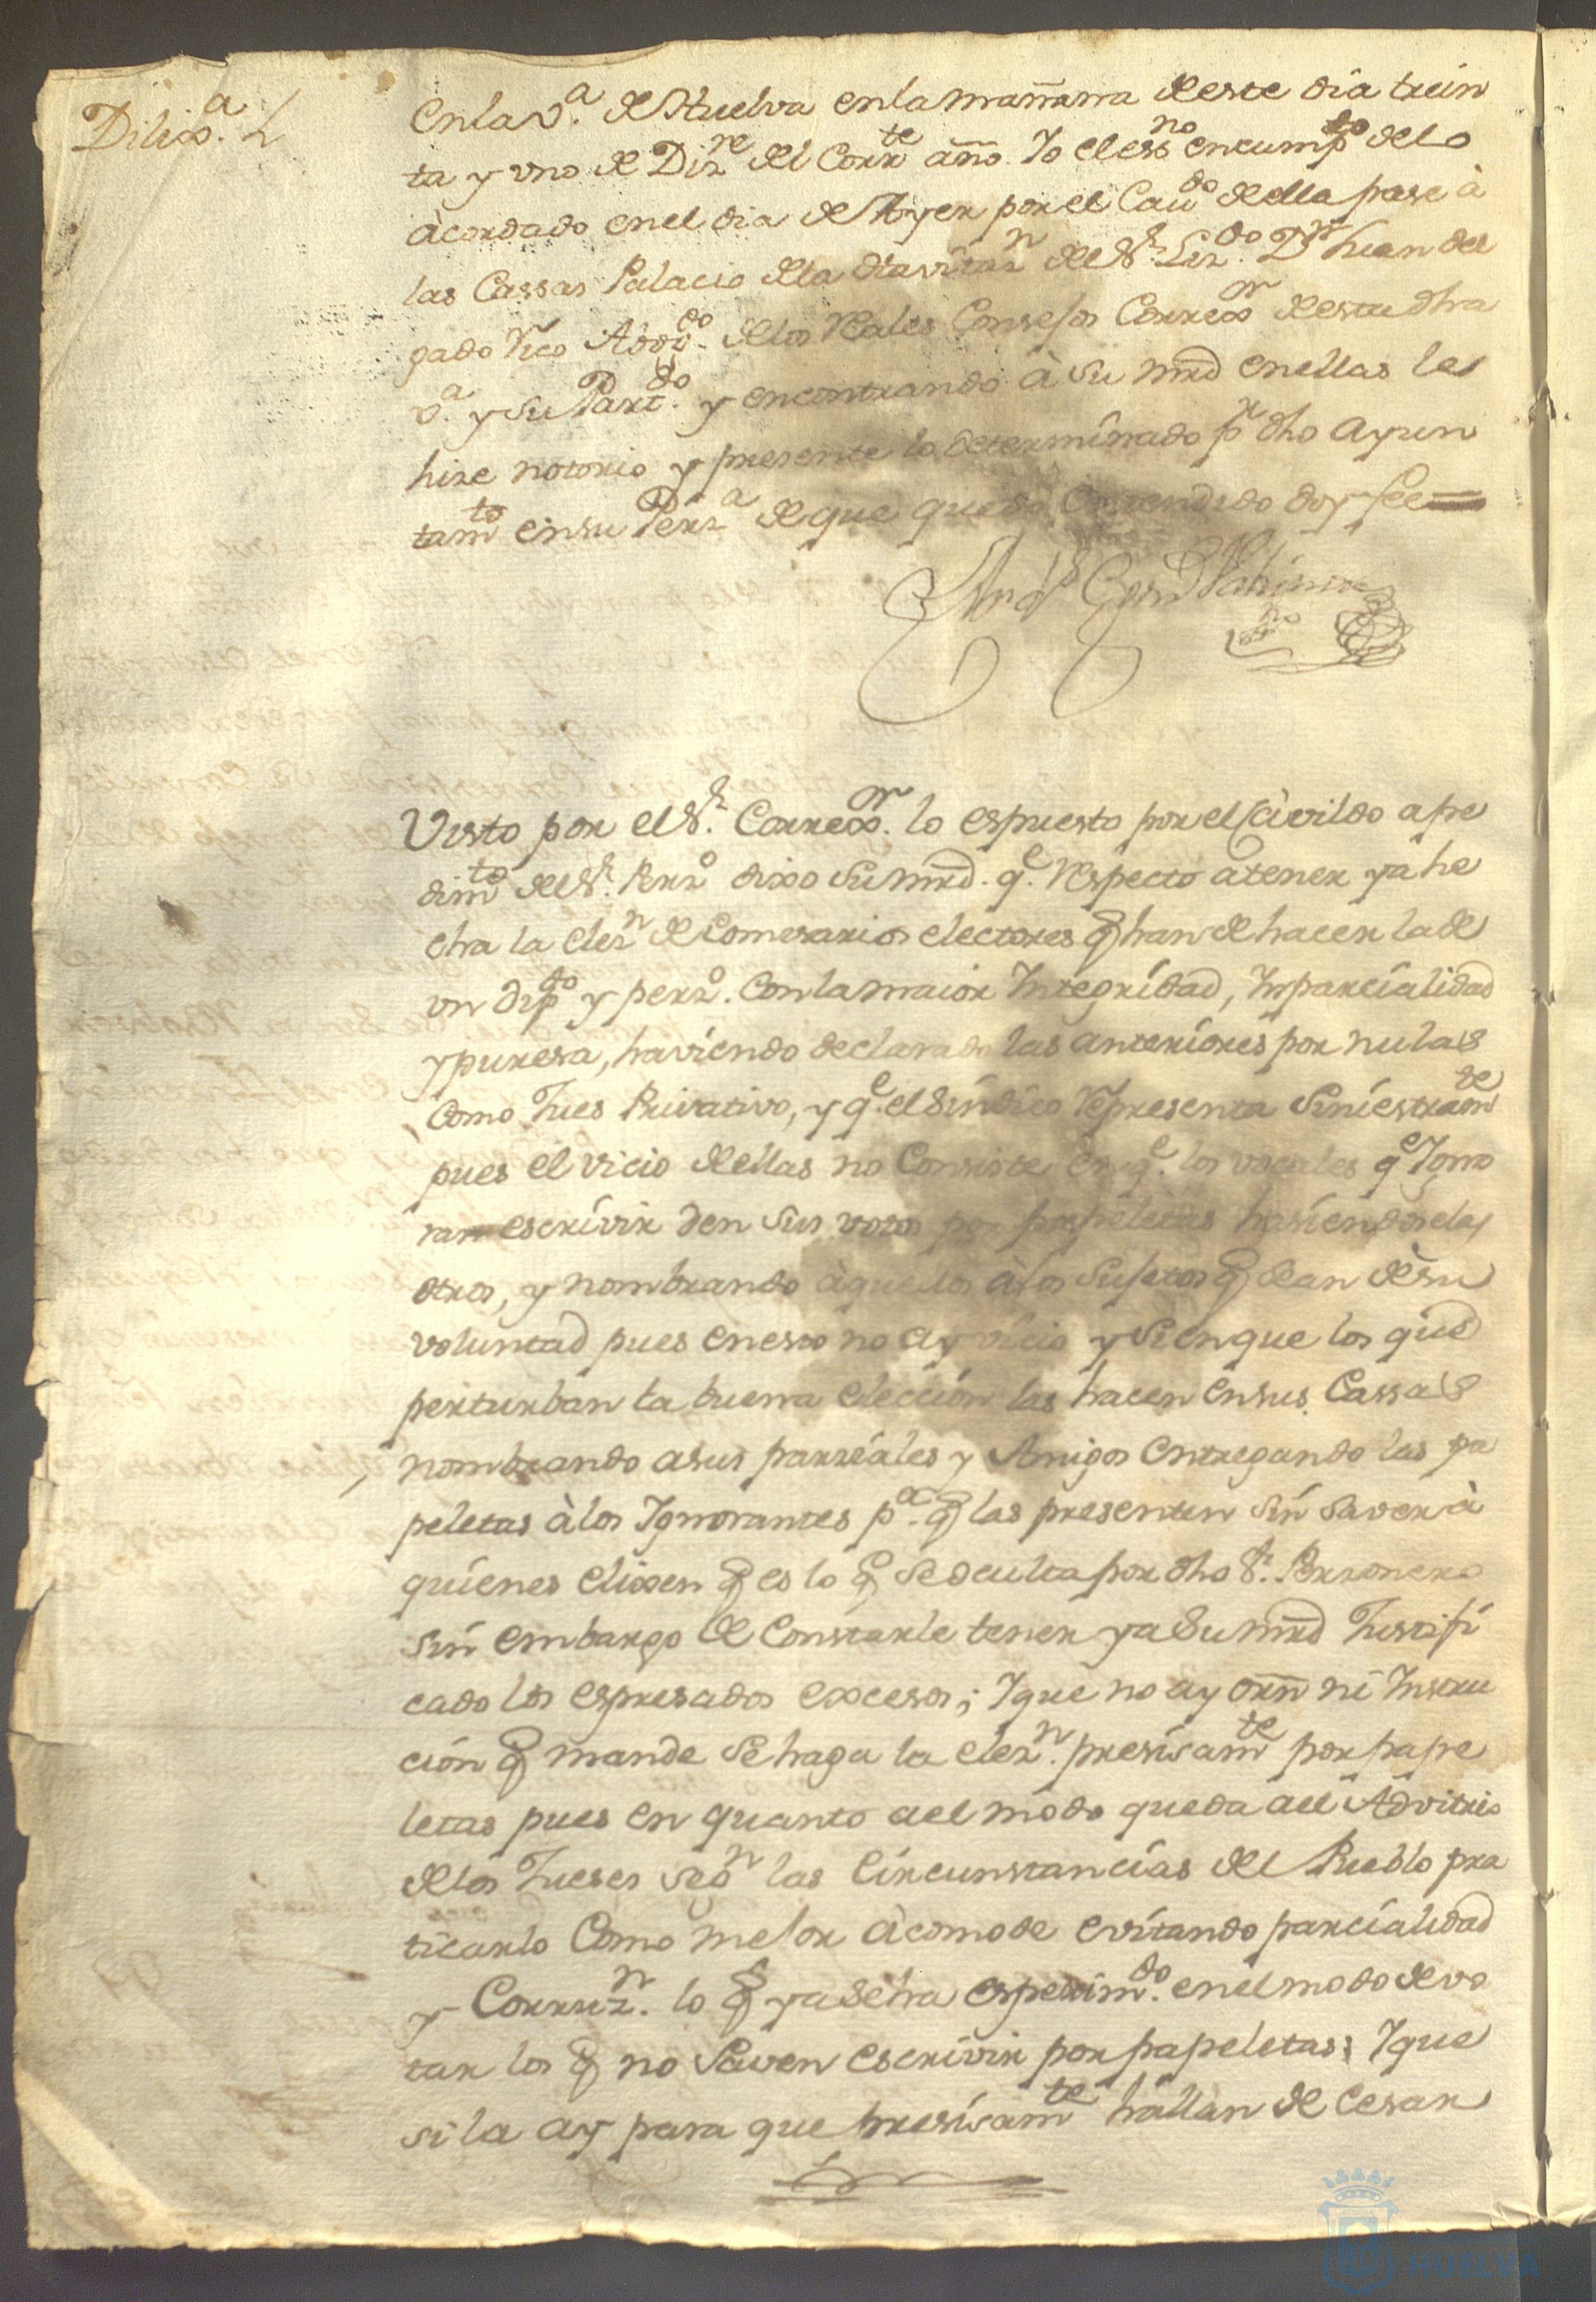 Dilix.ª
en la v.ª de Huelva en la mañana de este dia trein
ta y uno de Diz.re del Corr.te año. Yo el ess.no en cump.to de lo
àcordado en el dia de Ayer por el Cav.do de ella pase à
las Cassas Palacio de la Havitaz.n del S.r Liz.do D.n Juan del
gado Rico Abog.do de los R.ales Consejos Correx.or de esta dha
v.ª y su Part.do y encontrando à su mrd en ellas le
hize notorio y presente lo determinado p.r dho ayun
tam.to en su Perz.ª de que quedó Entendido doy fee=
Visto por el S.r Correx.or lo espuesto por el Cavildo a pe
dim.to del S.r Perz.o dixo su mrd. q.e respecto a tener ya he
cha la elez.n de Comisarios electores q han de hacer la de
un dip.do y perz.o. Con la maior Integridad, Inparcialidad
y puresa, haviendo declarado las anteriores por nulas
como Jues Privativo, y q.e el Síndico Representa Siniestram.te
pues el vicio de ellas no Consiste en q.e los vocales q.e Igno
ran escrivir den sus votos por papeletas hasiendoselas
otros, y nombrando àquellos à los Sujetos q sean de su
voluntad pues en esto no ay vicio y Si en que los que
perturban la buena elección las hacen en sus Cassas
nombrando a sus parziales y Amigos entregando las pa
peletas à los Ignorantes p.ª q las presenten sin saver à
quienes elixen q es lo q se oculta por dho S.r Perzonero
sin embargo de Constarle tener ya Su mrd Justifi
cado los espresados excesos; Y que no ay orn ni Instru
ción q mande se haga la elez.n presisam.te por pape
letas pues en quanto a el modo queda a el Advitrio
de los Jueses seg.n las Circunstancias del Pueblo pra
ticarlo Como mejor àcomode evitando parcialidad
y Corruz.n lo q ya se ha esperim.do en el modo de vo
tar los q no Saven escrivir por papeletas; Y que
si la ay para que presisam.te hallan de Cesar
HUELVA